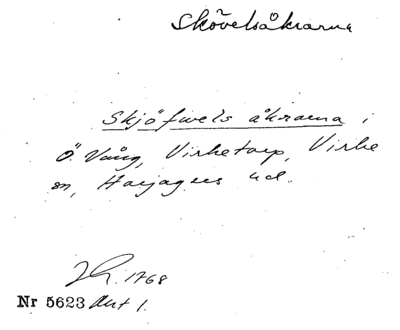 Skövelsåkrarna
Skjöfwels åkrarna i
Ö. Vång, Virketorp, Virke
sn, Harjagers hd.
1768
Nr 5623 Akt 1.